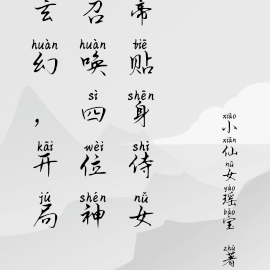 huàn kāi jú
玄幻，开局
huàn sì wèi shén
召唤四位神
tiē shēn shì nǚ
帝贴身侍女
xiǎo xiān nǚ yáo bǎo zhù
小仙女瑶宝 著